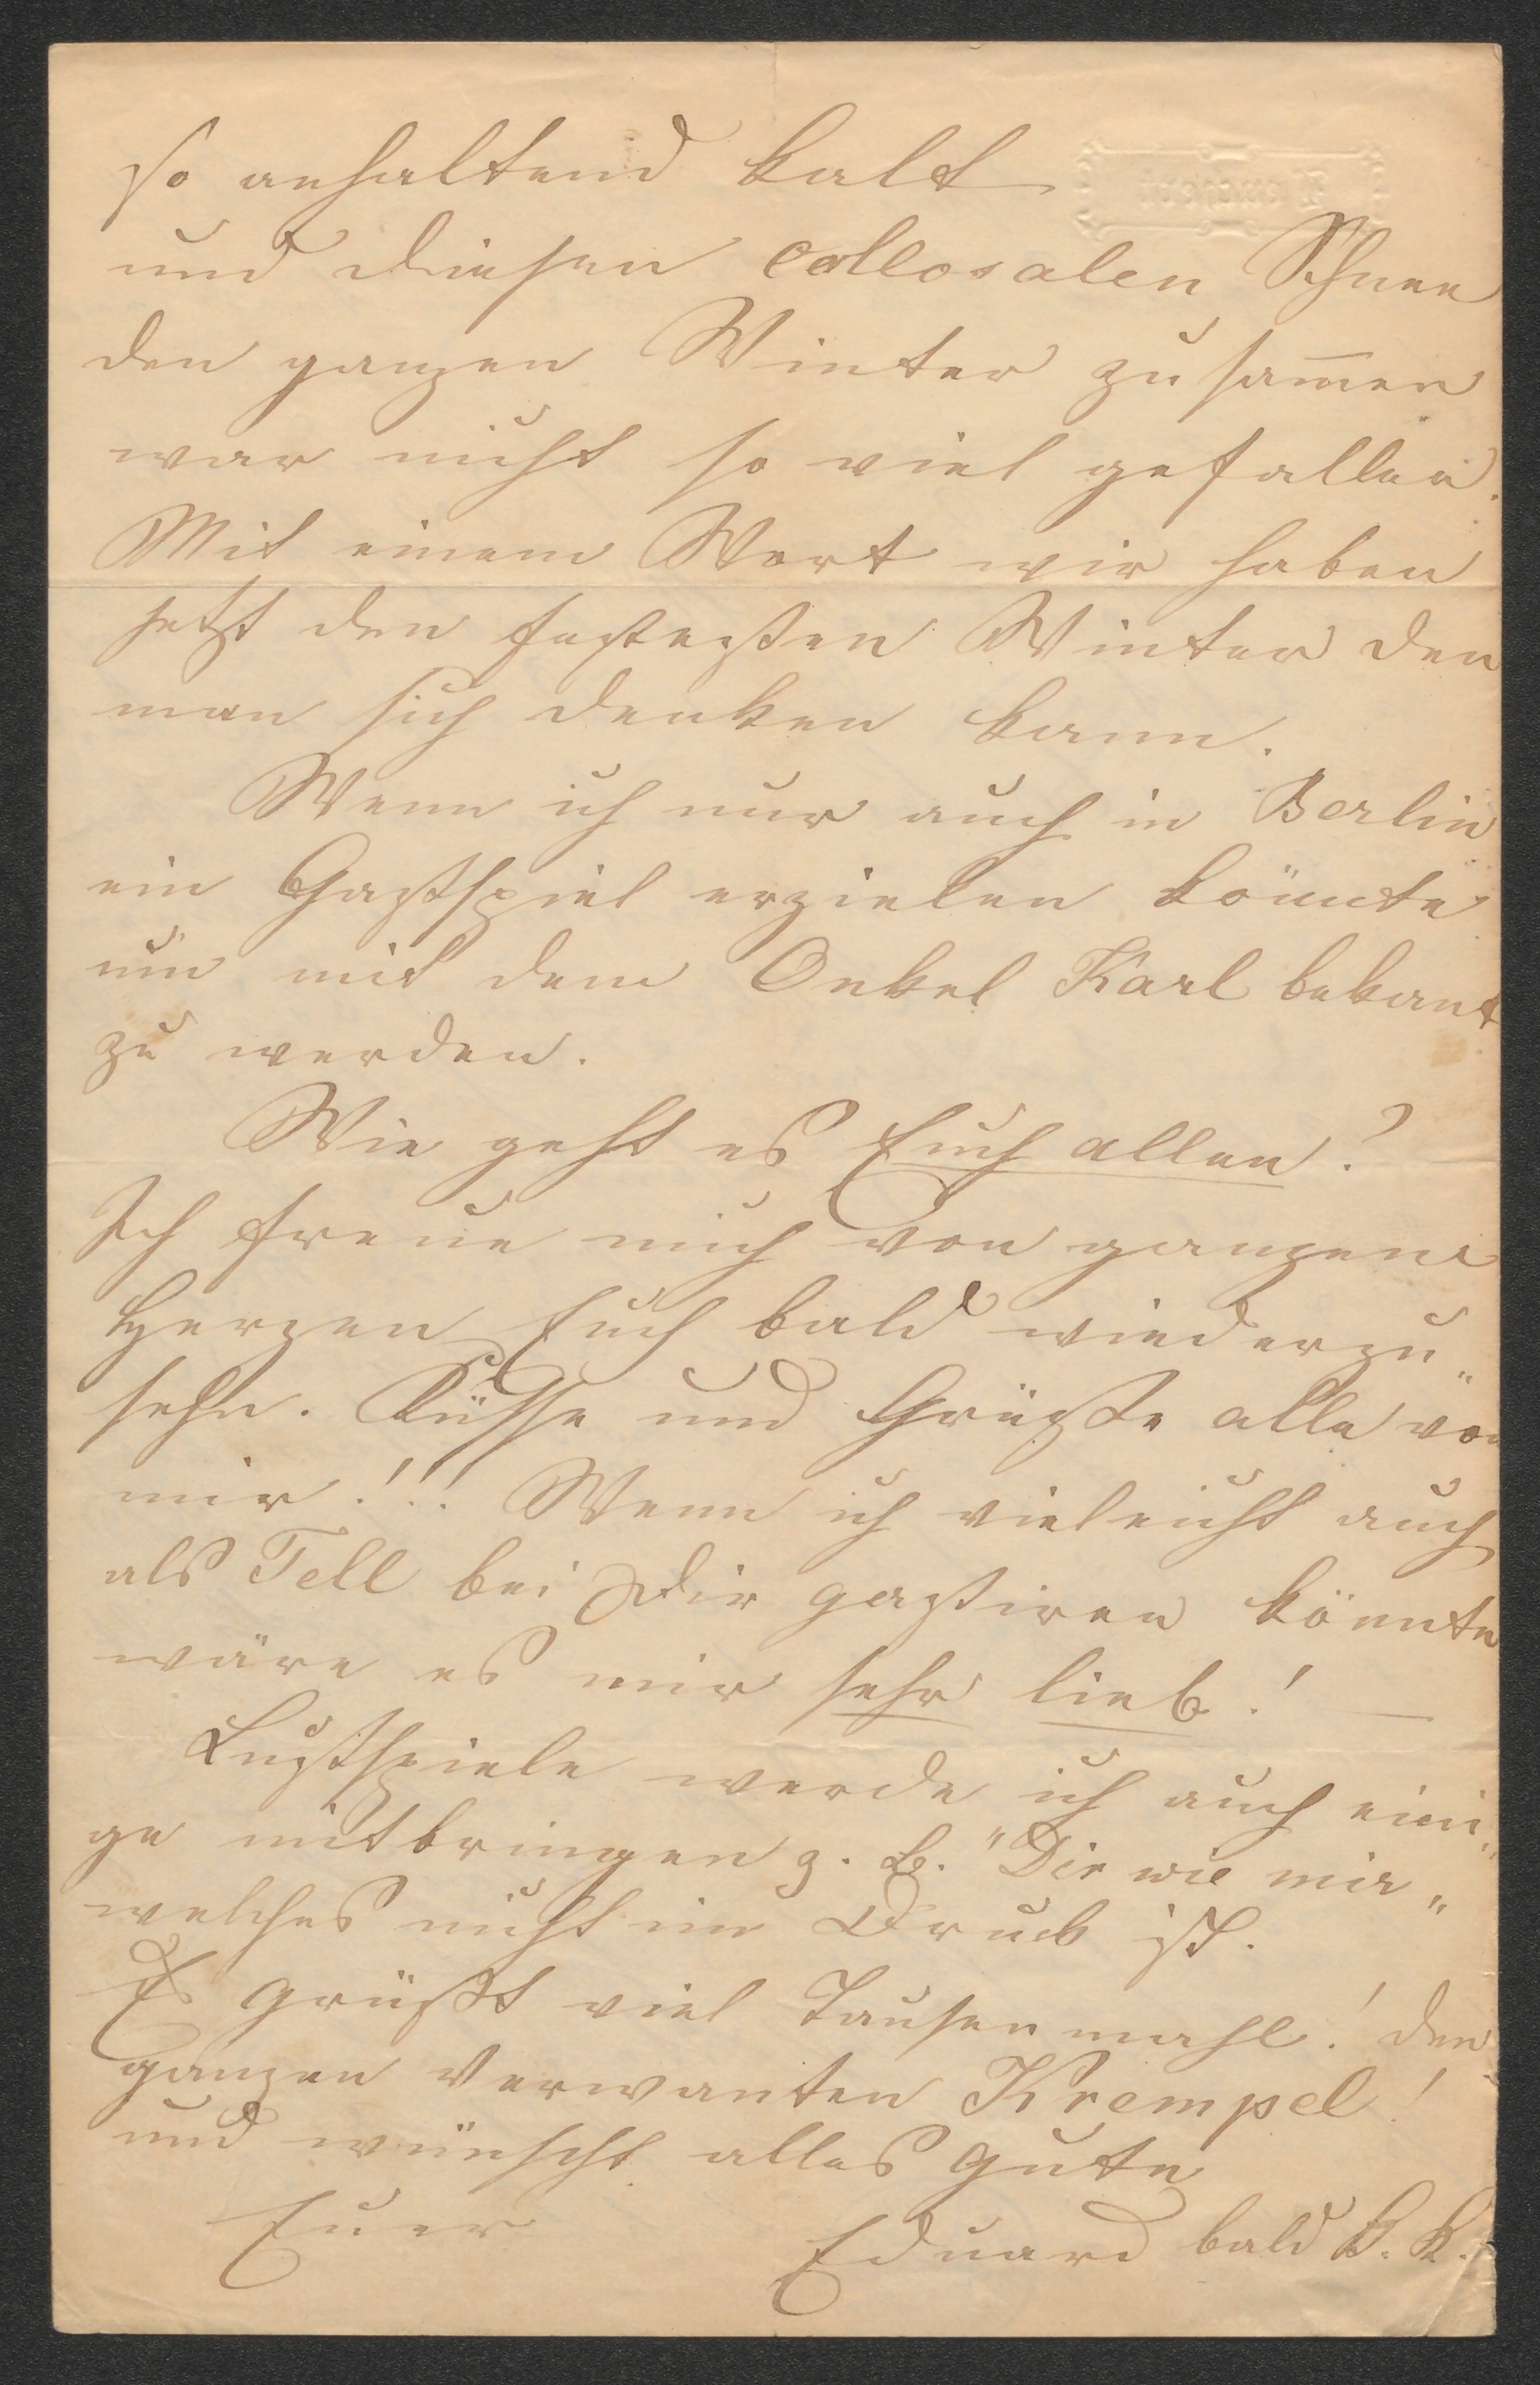 so anhaltend kalt
und diesen collosalen Schnee
den ganzen Winter zusam̄en
war nicht so viel gefallen.
Mit einem Wort wir haben
jetzt den festesten Winter den
man sich denken kann.
Wenn ich nur auch in Berlin
ein Gastspiel erzielen könnte
um mit dem Onkel Karl bekant
zu werden.
Wie geht es Euch allen?
Ich freue mich von ganzem
Herzen Euch bald wiederzu„
sehn. Küsse und Grüße alle von
mir!!! Wenn ich vieleicht auch
als Tell bei Dir gastiren könnte
wäre es mir sehr lieb! —
Lustspiele werde ich auch eini„
ge mitbringen z. B. "Dir wie mir„
welches nicht im Druck ist.
Es grüßt viel Tausenmahl! den
ganzen Verwanten Krempel!
und wünscht alles gute
Euer
Eduard bald K. K.